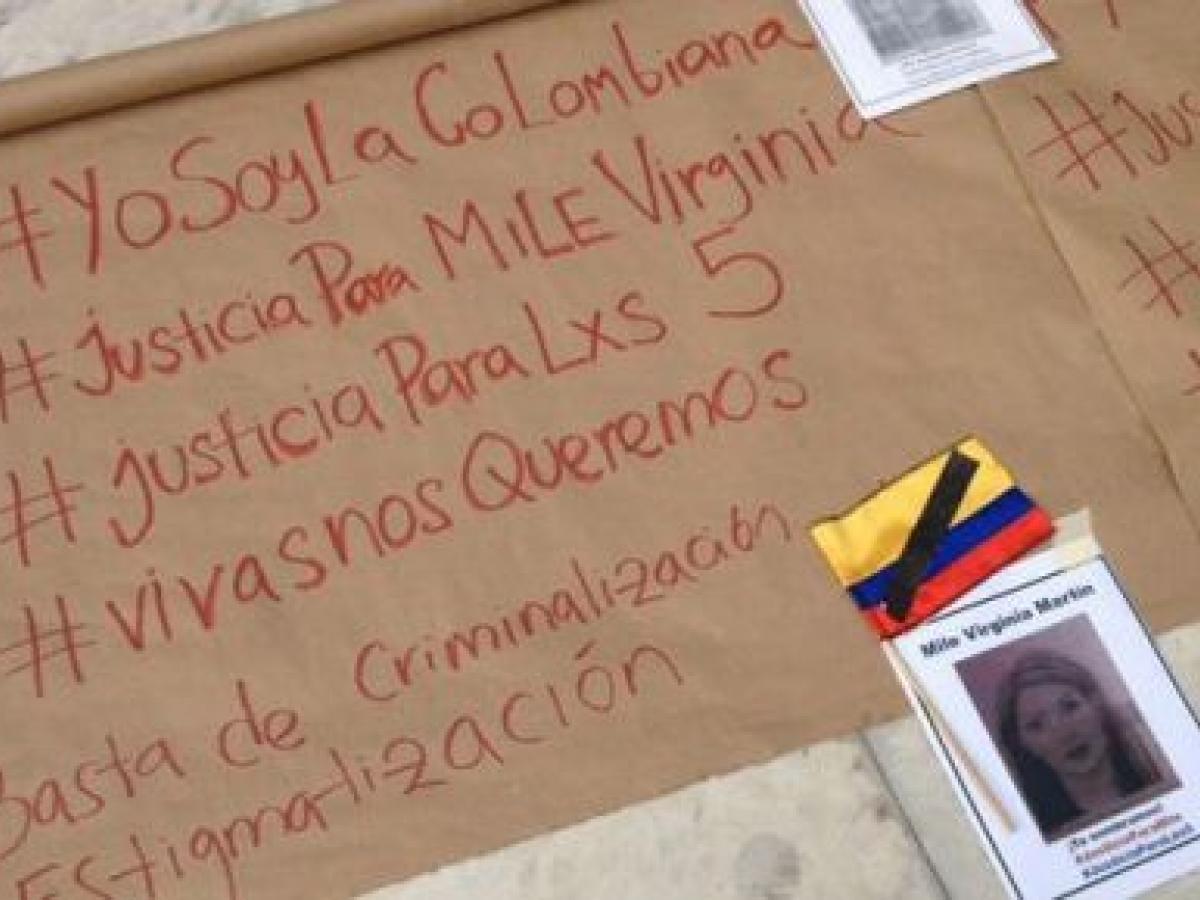 #YoSoyLa Colombiana
#Justicia Para MiLE Virginia
#Justicia Para Lxs 5
#vivasnosQueremos
Basta de Criminalización
Estigmatización
#Jus
#
Mile Virginia Martin